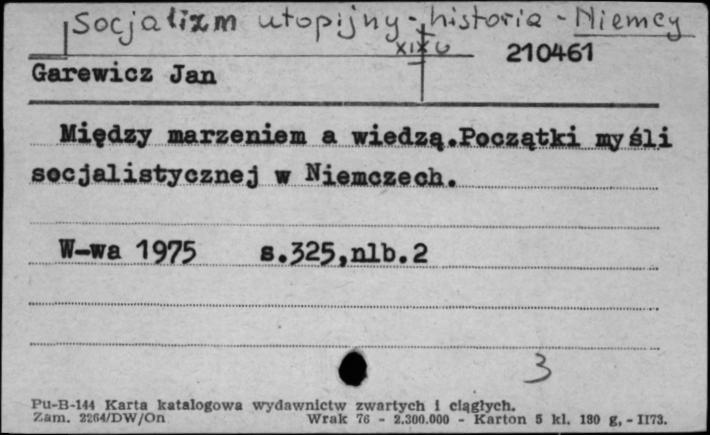 socjalizm utopijny - historia - Niemcy
XIX w
210461
Garewicz Jan
Między marzeniem a wiedzą.Początki myśli
socjalistycznej w Niemczech.
W-wa 1975 s.325,nlb.2
3
Pu-B-144 Karta katalogowa wydawnictw zwartych i ciągłych.
Zam. 2264/DW/On Wrak 76 - 2.300.000 - Karton 5 kl. 180 g, - II73.